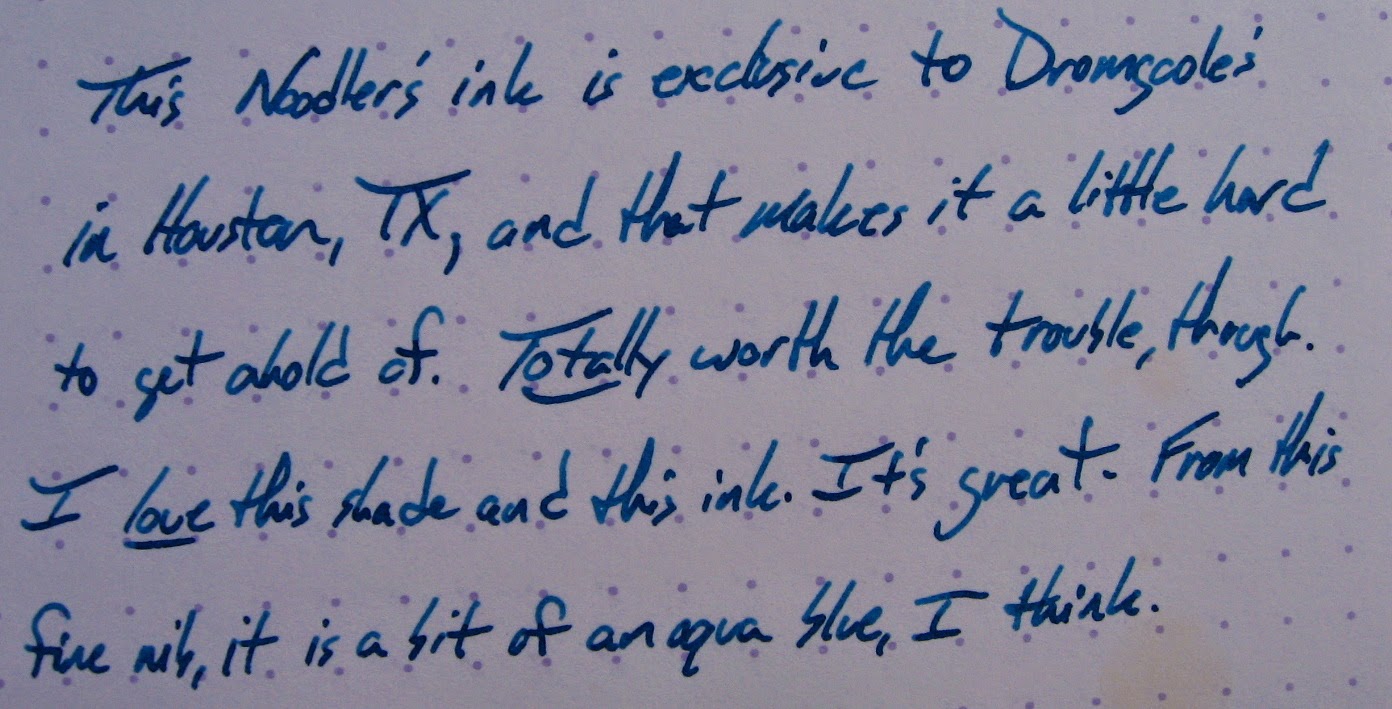 This Noodler's ink is exclusive to Dromgoole's
in Houston, TX, and that makes it a little hard
to get ahold of. Totally worth the trouble, though.
I love this shade and this ink. It's great. From this
fine nib, it is a bit of an aqua blue, I think.